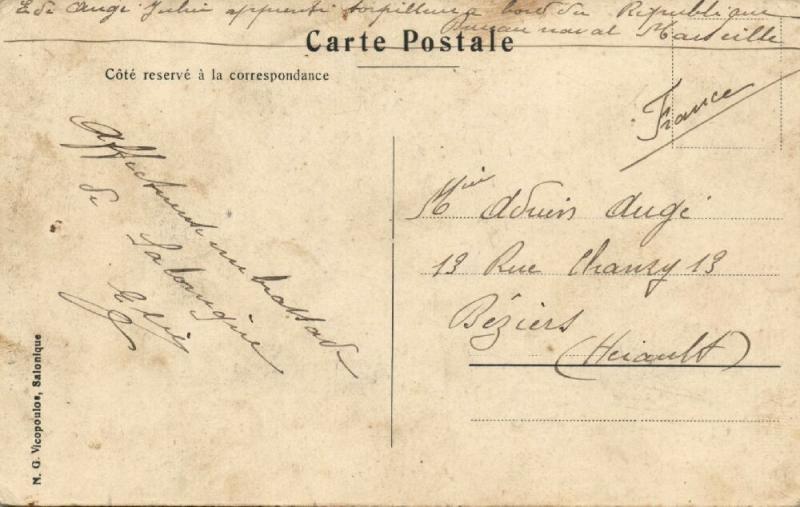 E de Augé Julien apprenti torpilleur à bord du République
Bureau naval Marseille
Carte Postale
Côté reservé à la correspondance
France
Affectueuse embrassade
de Salonique
Mme Augé
13 Rue Chanzy 13
Béziers
(Hérault)
N. G. Vicopoulos, Salonique